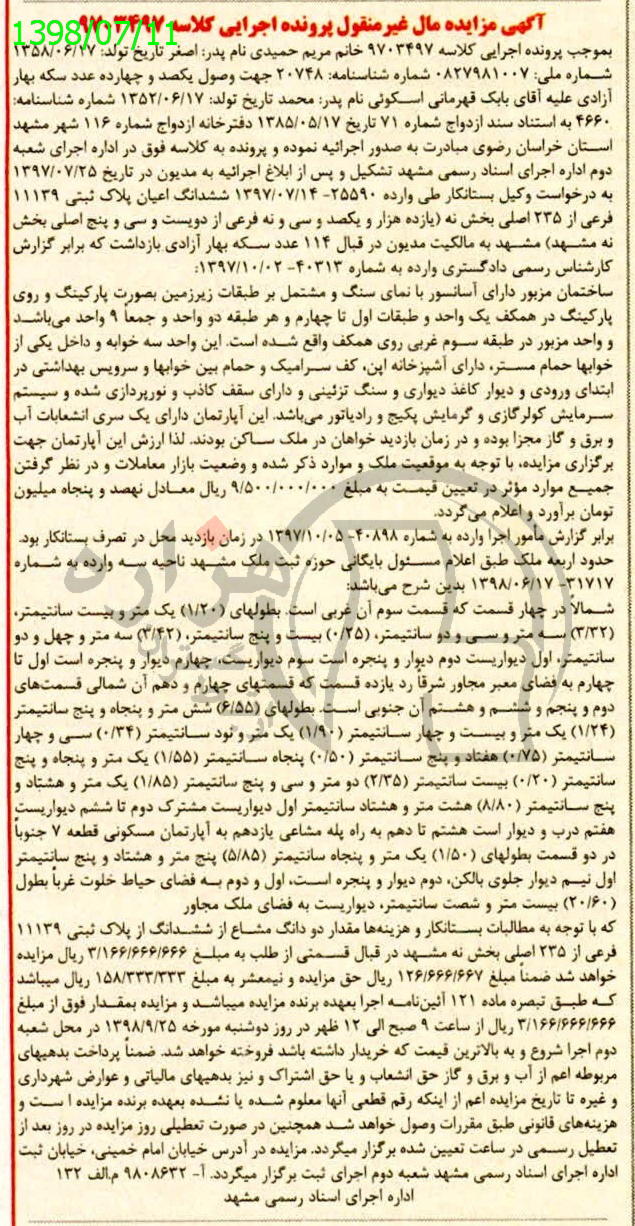 آگهی مزایده مال غیرمنقول پرونده اجرایی کلاسه ۹۷۰۳۴۹۷
1398/07/11
بموجب پرونده اجرایی کلاسه ۹۷۰۳۴۹۷ خانم مریم حمیدی نام پدر: اصغر تاریخ تولد: ۱۳۵۸/۰۶/۱۷
شماره ملی: ۰۸۲۷۹۸۱۰۰۷ شماره شناسنامه: ۲۰۷۴۸ جهت وصول یکصد و چهارده عدد سکه بهار
آزادی علیه آقای بابک قهرمانی اسکوئی نام پدر: محمد تاریخ تولد: ۱۳۵۲/۰۶/۱۷ شماره شناسنامه:
۴۶۶۰ به استناد سند ازدواج شماره ۷۱ تاریخ ۱۳۸۵/۰۵/۱۷ دفترخانه ازدواج شماره ۱۱۶ شهر مشهد
استان خراسان رضوی مبادرت به صدور اجرائیه نموده و پرونده به کلاسه فوق در اداره اجرای شعبه
دوم اداره اجرای اسناد رسمی مشهد تشکیل و پس از ابلاغ اجرائیه به مدیون در تاریخ ۱۳۹۷/۰۷/۲۵
به درخواست وکیل بستانکار طی وارده ۲۵۵۹۰- ۱۳۹۷/۰۷/۱۴ ششدانگ اعیان پلاک ثبتی ۱۱۱۳۹
فرعی از ۲۳۵ اصلی بخش نه (یازده هزار و یکصد و سی و نه فرعی از دویست و سی و پنج اصلی بخش
نه مشهد) مشهد به مالکیت مدیون در قبال ۱۱۴ عدد سکه بهار آزادی بازداشت که برابر گزارش
کارشناس رسمی دادگستری وارده به شماره ۴۰۳۱۳- ۱۳۹۷/۱۰/۰۲:
ساختمان مزبور دارای آسانسور با نمای سنگ و مشتمل بر طبقات زیرزمین بصورت پارکینگ و روی
پارکینگ در همکف یک واحد و طبقات اول تا چهارم و هر طبقه دو واحد و جمعاً ۹ واحد می‌باشد
و واحد مزبور در طبقه سوم غربی روی همکف واقع شده است. این واحد سه خوابه و داخل یکی از
خوابها حمام مستر، دارای آشپزخانه اپن، کف سرامیک و حمام بین خوابها و سرویس بهداشتی در
ابتدای ورودی و دیوار کاغذ دیواری و سنگ تزئینی و دارای سقف کاذب و نورپردازی شده و سیستم
سرمایش کولرگازی و گرمایش پکیج و رادیاتور می‌باشد. این آپارتمان دارای یک سری انشعابات آب
و برق و گاز مجزا بوده و در زمان بازدید خواهان در ملک ساکن بودند. لذا ارزش این آپارتمان جهت
برگزاری مزایده، با توجه به موقعیت ملک و موارد ذکر شده و وضعیت بازار معاملات و در نظر گرفتن
جمیع موارد مؤثر در تعیین قیمت به مبلغ ۹/۵۰۰/۰۰۰/۰۰۰ ریال معادل نهصد و پنجاه میلیون
تومان برآورد و اعلام می‌گردد.
برابر گزارش مأمور اجرا وارده به شماره ۴۰۸۹۸- ۱۳۹۷/۱۰/۰۵ در زمان بازدید محل در تصرف بستانکار بود.
حدود اربعه ملک طبق اعلام مسئول بایگانی حوزه ثبت ملک مشهد ناحیه سه وارده به شماره
۳۱۷۱۷- ۱۳۹۸/۰۶/۱۷ بدین شرح می‌باشد:
شمالاً در چهار قسمت که قسمت سوم آن غربی است. بطولهای (۱/۲۰) یک متر و بیست سانتیمتر،
(۳/۳۲) سه متر و سی و دو سانتیمتر، (۰/۲۵) بیست و پنج سانتیمتر، (۳/۴۲) سه متر و چهل و دو
سانتیمتر، اول دیواریست دوم دیوار و پنجره است سوم دیواریست، چهارم دیوار و پنجره است اول تا
چهارم به فضای معبر مجاور شرقاً رد یازده قسمت که قسمتهای چهارم و دهم آن شمالی قسمت‌های
دوم و پنجم و ششم و هشتم آن جنوبی است. بطولهای (۶/۵۵) شش متر و پنجاه و پنج سانتیمتر
(۱/۲۴) یک متر و بیست و چهار سانتیمتر (۱/۹۰) یک متر و نود سانتیمتر (۰/۳۴) سی و چهار
سانتیمتر (۰/۷۵) هفتاد و پنج سانتیمتر (۰/۵۰) پنجاه سانتیمتر (۱/۵۵) یک متر و پنجاه و پنج
سانتیمتر (۰/۲۰) بیست سانتیمتر (۲/۳۵) دو متر و سی و پنج سانتیمتر (۱/۸۵) یک متر و هشتاد و
پنج سانتیمتر (۸/۸۰) هشت متر و هشتاد سانتیمتر اول دیواریست مشترک دوم تا ششم دیواریست
هفتم درب و دیوار است هشتم تا دهم به راه پله مشاعی یازدهم به آپارتمان مسکونی قطعه ۷ جنوباً
در دو قسمت بطولهای (۱/۵۰) یک متر و پنجاه سانتیمتر (۵/۸۵) پنج متر و هشتاد و پنج سانتیمتر
اول نیم دیوار جلوی بالکن، دوم دیوار و پنجره است، اول و دوم به فضای حیاط خلوت غرباً بطول
(۲۰/۶۰) بیست متر و شصت سانتیمتر، دیواریست به فضای ملک مجاور
که با توجه به مطالبات بستانکار و هزینه‌ها مقدار دو دانگ مشاع از ششدانگ از پلاک ثبتی ۱۱۱۳۹
فرعی از ۲۳۵ اصلی بخش نه مشهد در قبال قسمتی از طلب به مبلغ ۳/۱۶۶/۶۶۶/۶۶۶ ریال مزایده
خواهد شد ضمناً مبلغ ۱۲۶/۶۶۶/۶۶۷ ریال حق مزایده و نیمعشر به مبلغ ۱۵۸/۳۳۳/۳۳۳ ریال میباشد
که طبق تبصره ماده ۱۲۱ آئین‌نامه اجرا بعهده برنده مزایده میباشد و مزایده بمقدار فوق از مبلغ
۳/۱۶۶/۶۶۶/۶۶۶ ریال از ساعت ۹ صبح الی ۱۲ ظهر در روز دوشنبه مورخه ۱۳۹۸/۹/۲۵ در محل شعبه
دوم اجرا شروع و به بالاترین قیمت که خریدار داشته باشد فروخته خواهد شد. ضمناً پرداخت بدهیهای
مربوطه اعم از آب و برق و گاز حق انشعاب و یا حق اشتراک و نیز بدهیهای مالیاتی و عوارض شهرداری
و غیره تا تاریخ مزایده اعم از اینکه رقم قطعی آنها معلوم شده یا نشده بعهده برنده مزایده است و
هزینه‌های قانونی طبق مقررات وصول خواهد شد همچنین در صورت تعطیلی روز مزایده در روز بعد از
تعطیل رسمی در ساعت تعیین شده برگزار میگردد. مزایده در آدرس خیابان امام خمینی، خیابان ثبت
اداره اجرای اسناد رسمی مشهد شعبه دوم اجرای ثبت برگزار میگردد. آ- ۹۸۰۸۶۳۲ م.الف ۱۳۲
اداره اجرای اسناد رسمی مشهد